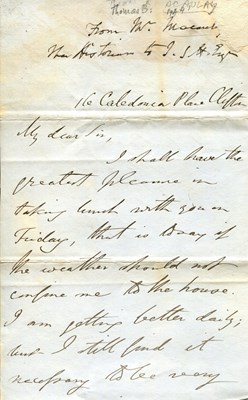 Thomas B.
From Mr. Macaulay
the Historian to J. S. H. Esqr
16 Caledonia Place Clifton
My dear Sir,
I shall have the
greatest pleasure in
taking lunch with you on
Friday, that is to say if
the weather should not
confine me to the house.
I am getting better daily;
but I still find it
necessary to be very